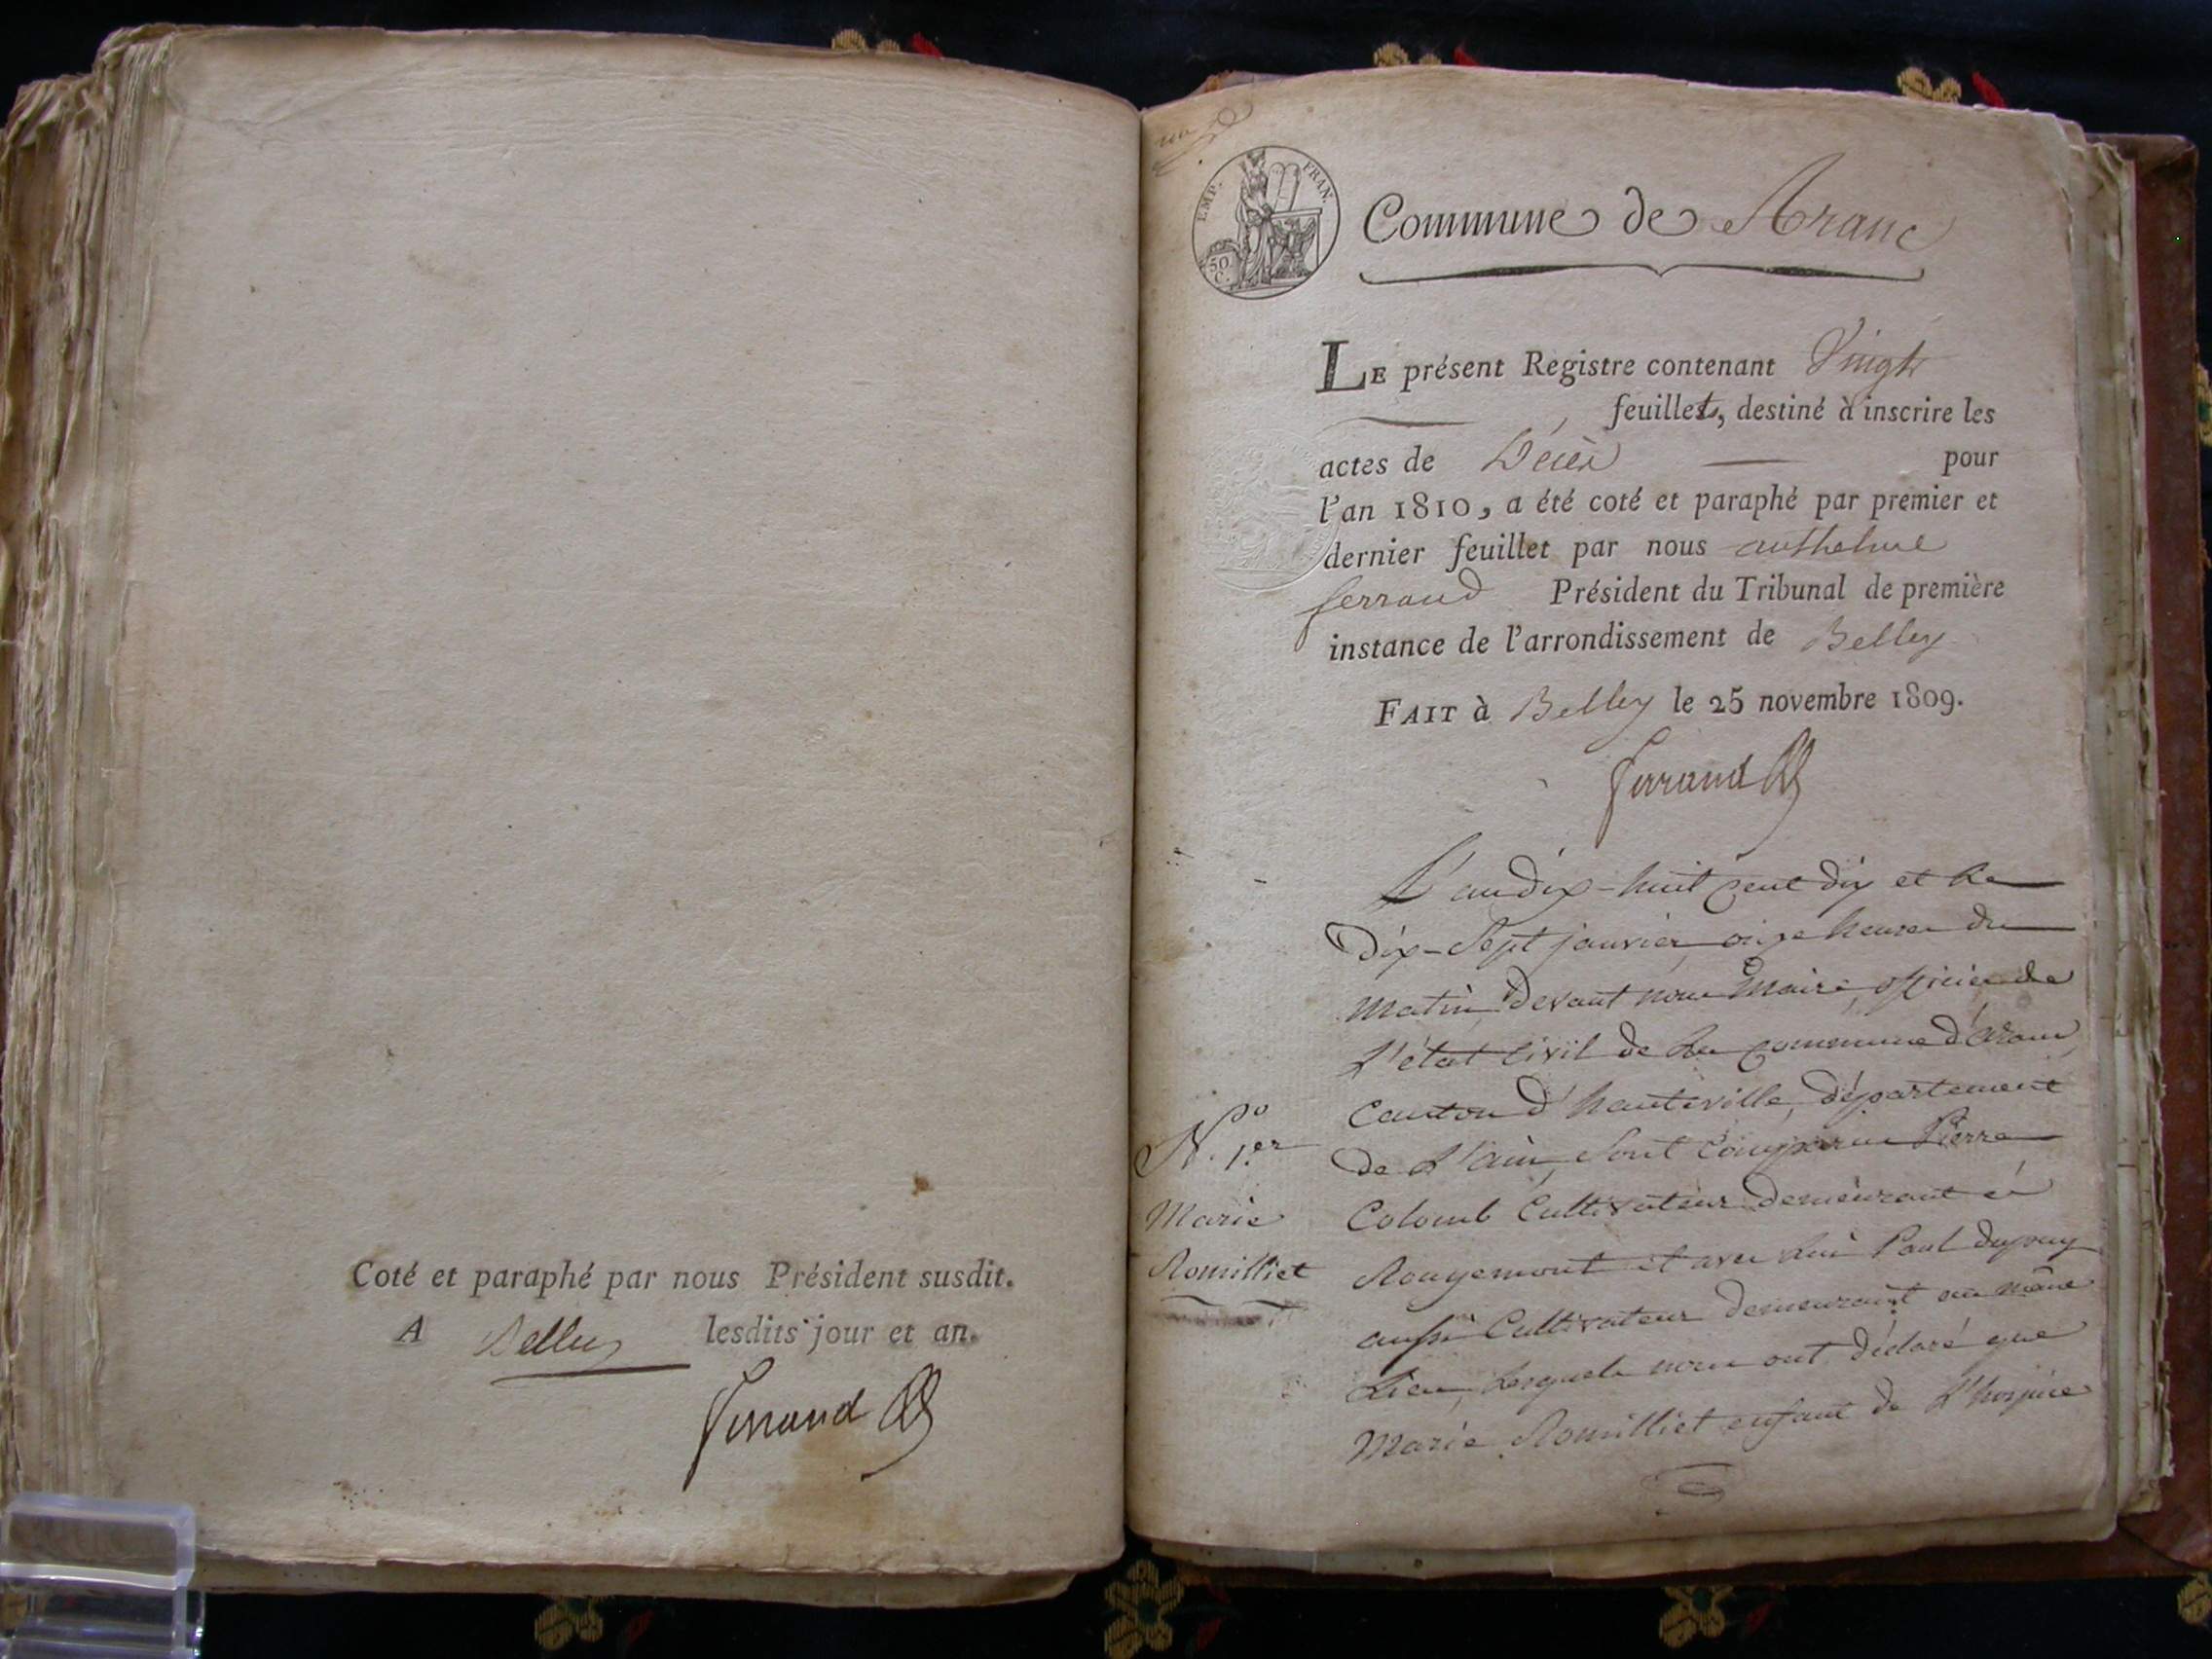 Coté et paraphé par nous Président susdit.
A Belley lesdits jour et an.
Ferrand
un
EMP. FRAN.
50 C.
Commune de Aranc
LE présent Registre contenant Vingt
feuillets, destiné à inscrire les
actes de Décès pour
l'an 1810, a été coté et paraphé par premier et
dernier feuillet par nous anthelme
ferrand Président du Tribunal de première
instance de l'arrondissement de Belley
FAIT à Belley le 25 novembre 1809.
Ferrand
L'an dix-huit cent dix et le
dix-Sept janvier onze heures du
matin, devant nous Maire, officier de
L'état civil de la commune d'aranc,
Canton d'hauteville, département
de L'ain, Sont Comparus Pierre
Colomb Cultivateur demeurant à
Rougemont et avec lui Paul dupuy
aussi Cultivateur demeurant au même
Lieu, Lesquels nous ont déclaré que
Marie Romilliet enfant de L'hospice
N.° 1.er
Marie
Romilliet